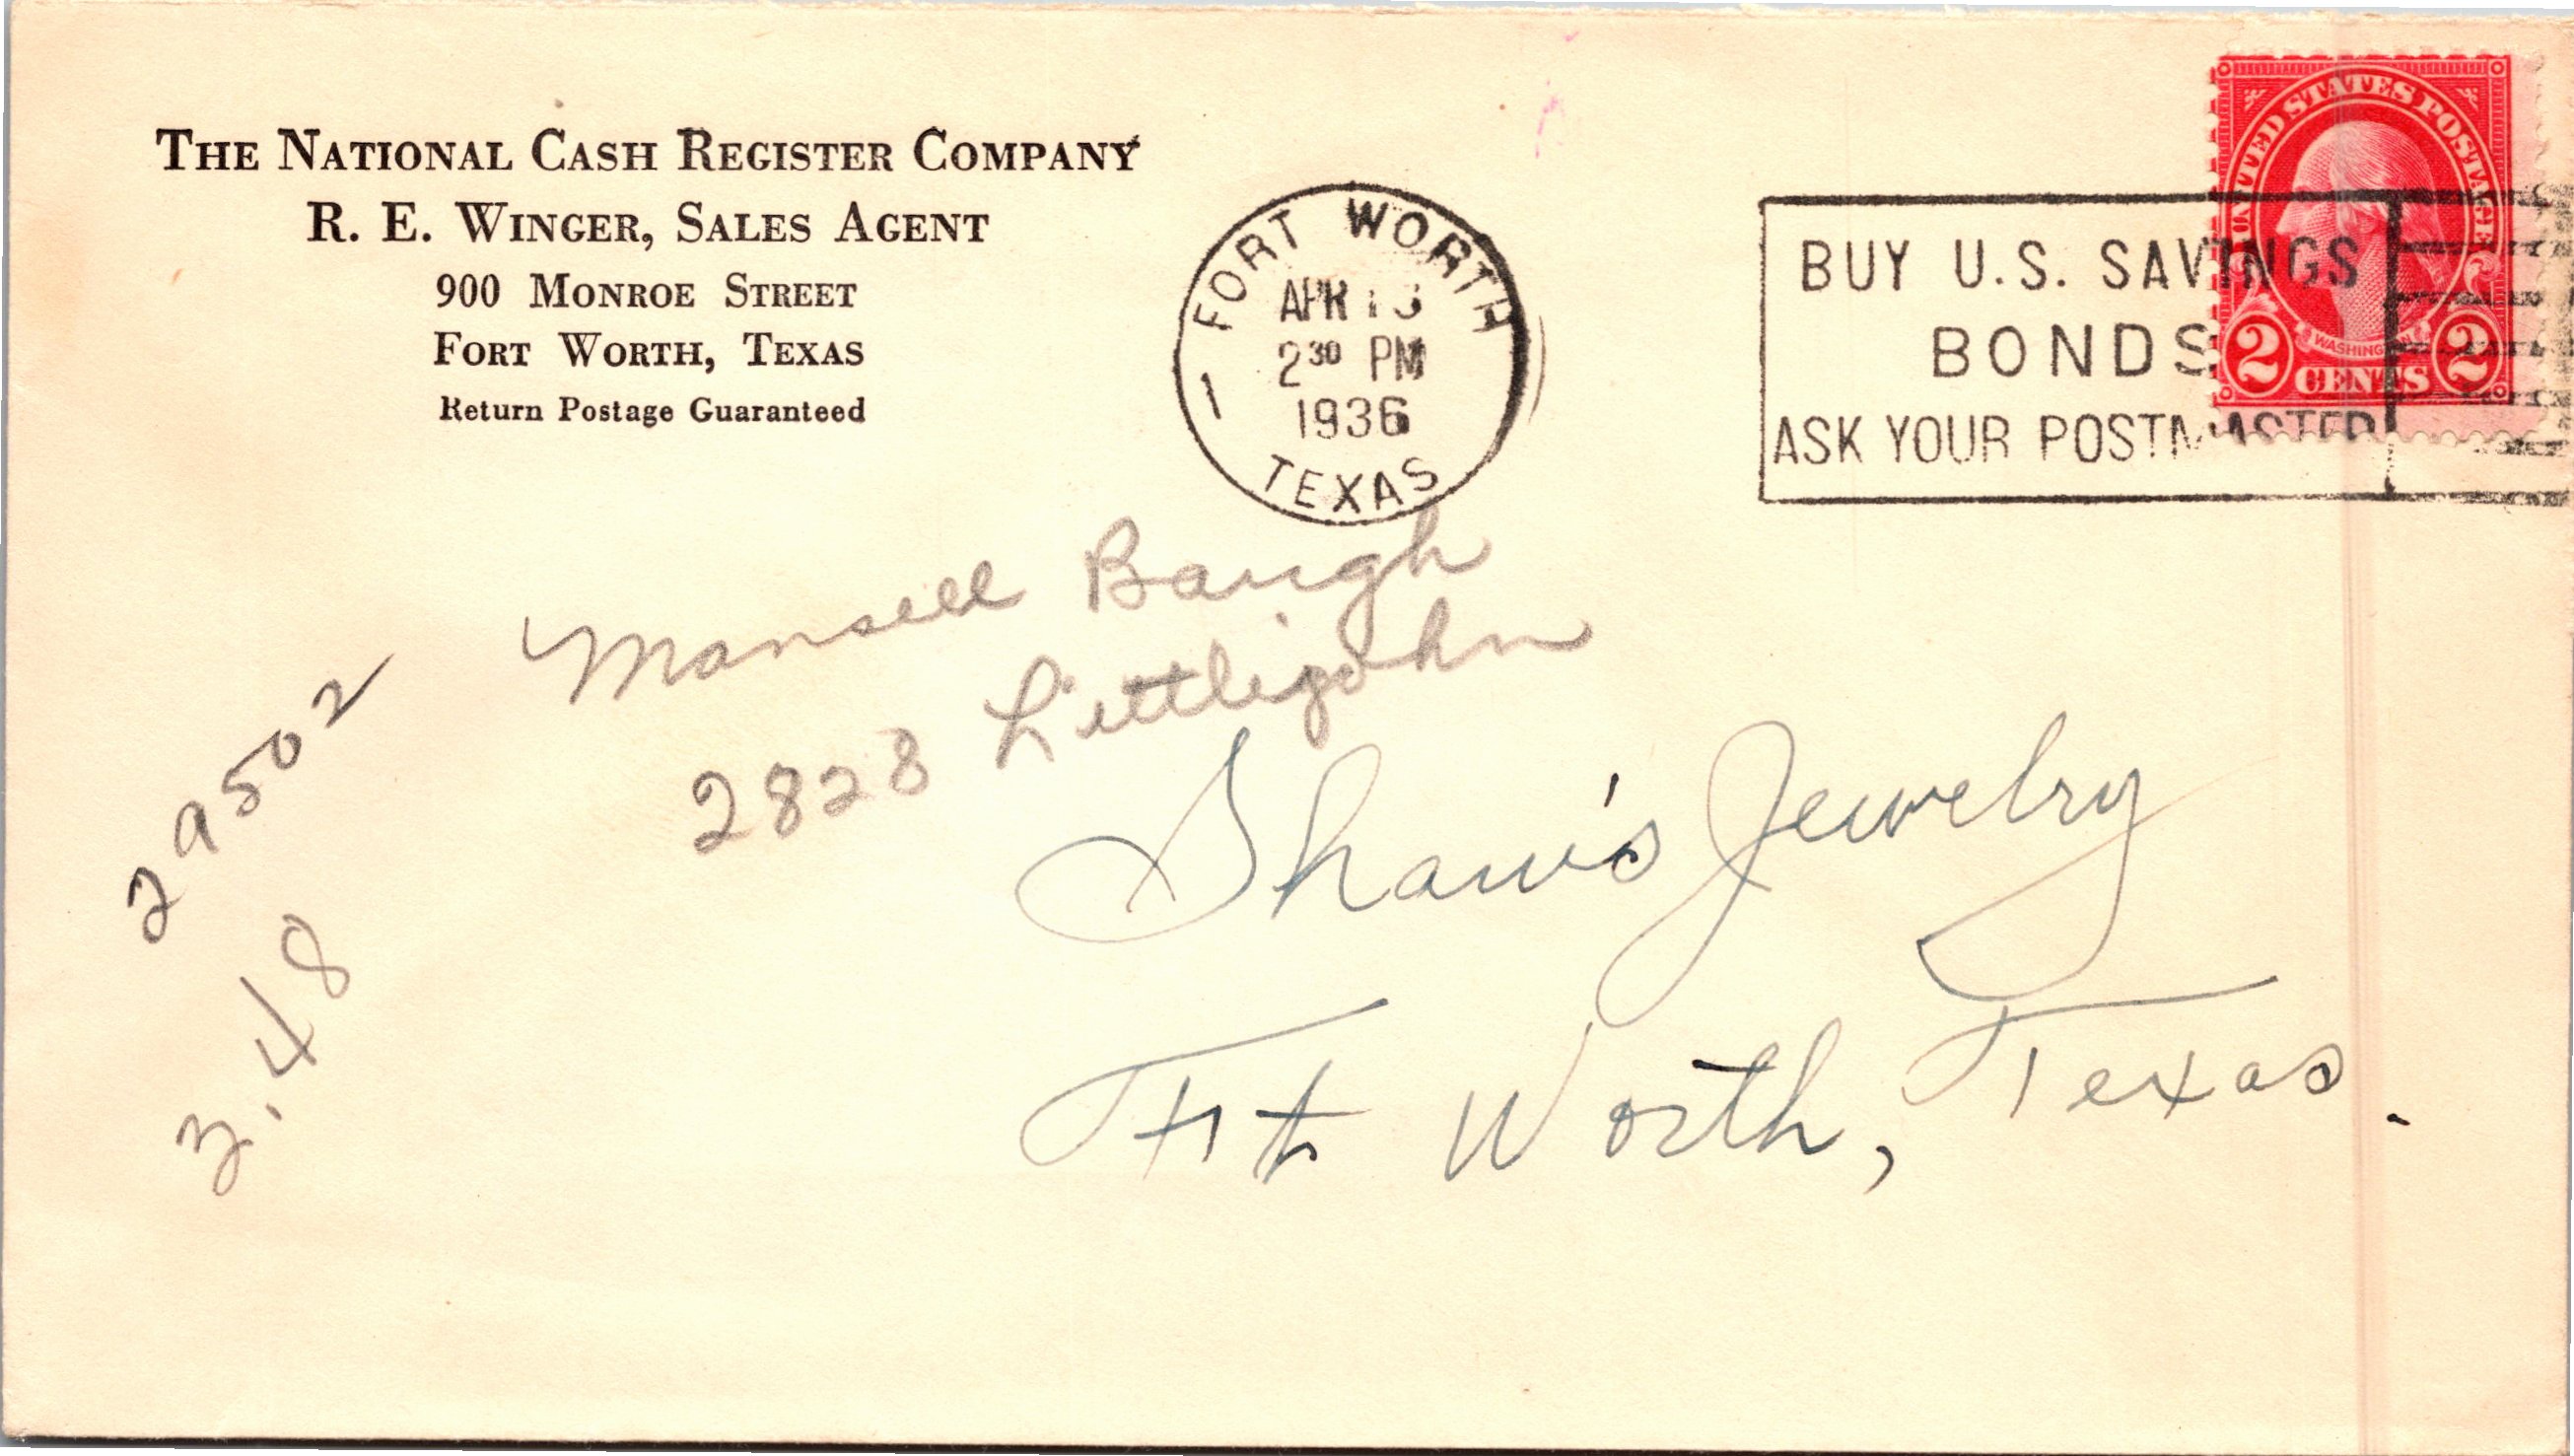 THE NATIONAL CASH REGISTER COMPANY
R. E. WINGER, SALES AGENT
900 MONROE STREET
FORT WORTH, TEXAS
Return Postage Guaranteed
FORT WORTH
APR
2 30 PM
1936
1
TEXAS
BUY U.S. SAVINGS
BONDS
ASK YOUR POSTMASTER
UNITED STATES POSTAGE
WASHINGTON
2 CENTS 2
Mansell Baugh
2828 Littlejohn
29502
3.48
Shaw's Jewelry
Ft Worth, Texas.